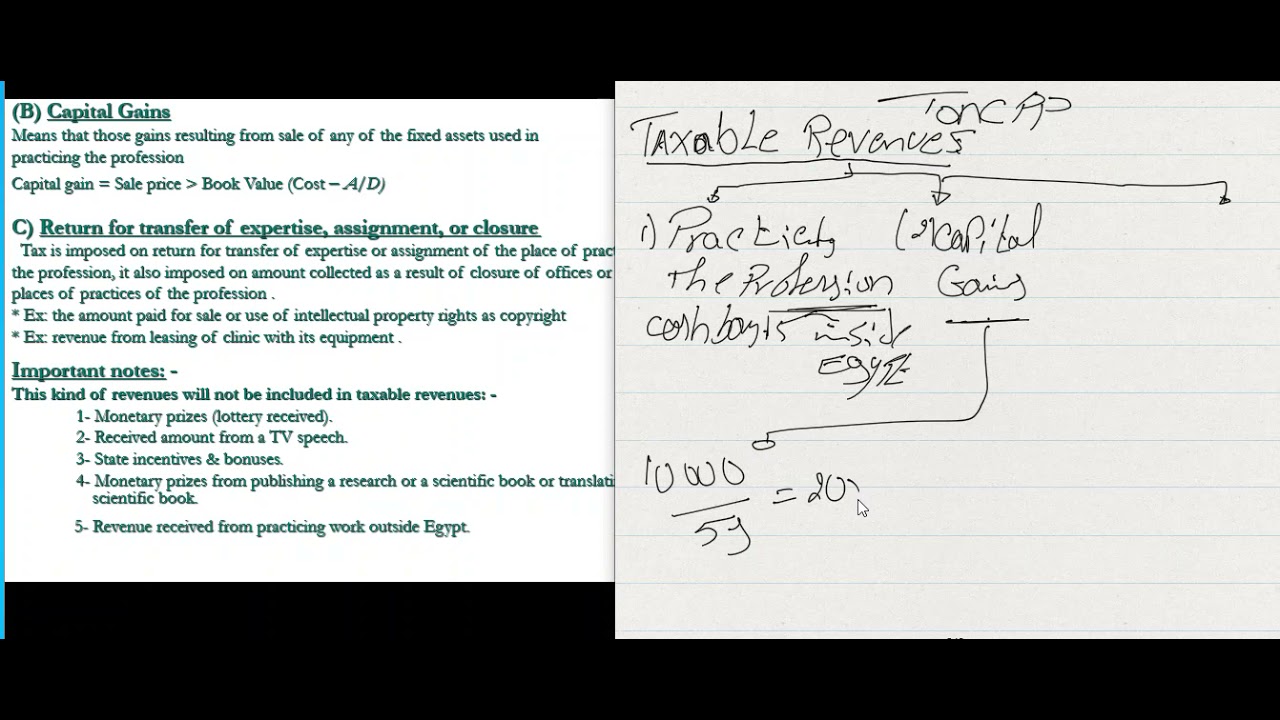 (B) Capital Gains
Means that those gains resulting from sale of any of the fixed assets used in
practicing the profession
Capital gain = Sale price > Book Value (Cost – A/D)
C) Return for transfer of expertise, assignment, or closure
Tax is imposed on return for transfer of expertise or assignment of the place of pract
the profession, it also imposed on amount collected as a result of closure of offices or
places of practices of the profession .
* Ex: the amount paid for sale or use of intellectual property rights as copyright
* Ex: revenue from leasing of clinic with its equipment .
Important notes: -
This kind of revenues will not be included in taxable revenues: -
1- Monetary prizes (lottery received).
2- Received amount from a TV speech.
3- State incentives & bonuses.
4- Monetary prizes from publishing a research or a scientific book or translati
scientific book.
5- Revenue received from practicing work outside Egypt.
Taxable Revenues
1) Practicing
the Profession
inside
EGYPT
(2) Capital
Gains
10000
5y
= 20